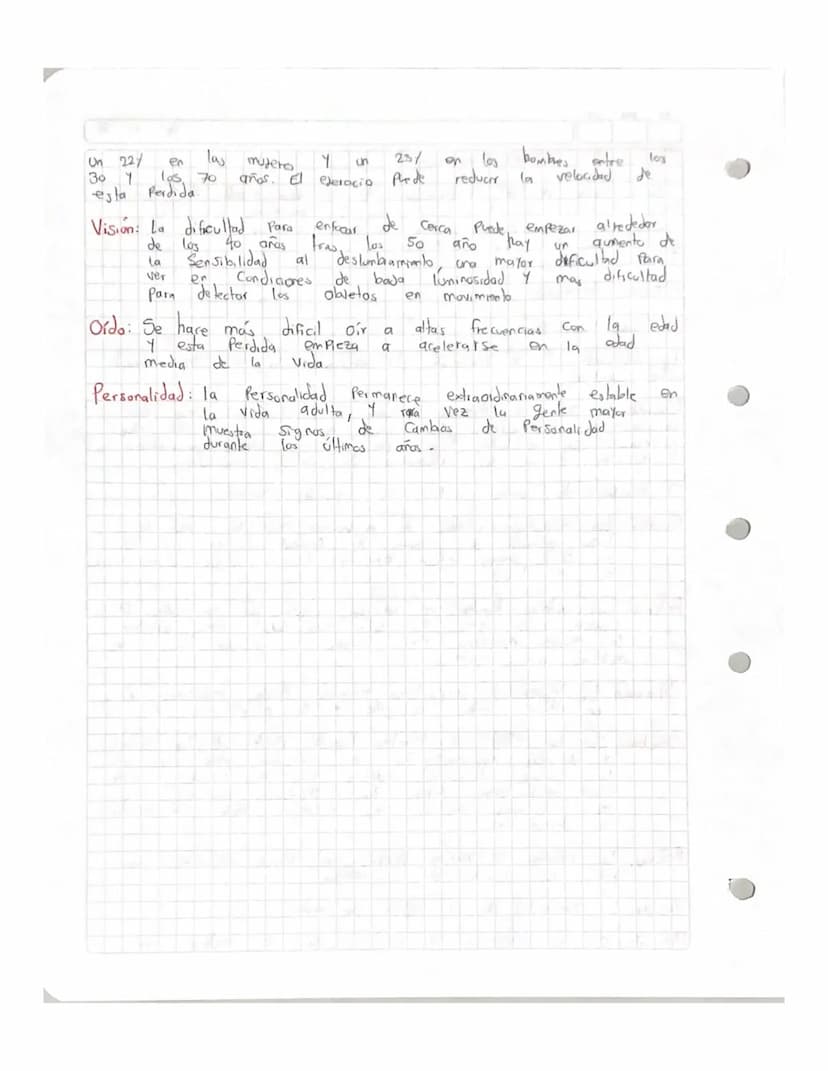 Un 22% en las mujeres y un 23% en los hombres entre los
30 y los 70 años. El ejercicio puede reducir la velocidad de
esta perdida.
Visión: La dificultad para enfocar de cerca puede empezar alrededor
de los 40 años tras los 50 año hay un aumento de
la sensibilidad al deslumbramiento, una mayor dificultad para
ver en condiciones de baja luminosidad y mas dificultad
para detectar los objetos en movimiento.
Oído: Se hace más dificil oír a altas frecuencias con la edad
y esta perdida empieza a acelerarse en la edad
media de la vida.
Personalidad: la personalidad permanece extraordinariamente estable en
la vida adulta, y rara vez la gente mayor
muestra signos de cambios de personalidad
durante los últimos años.